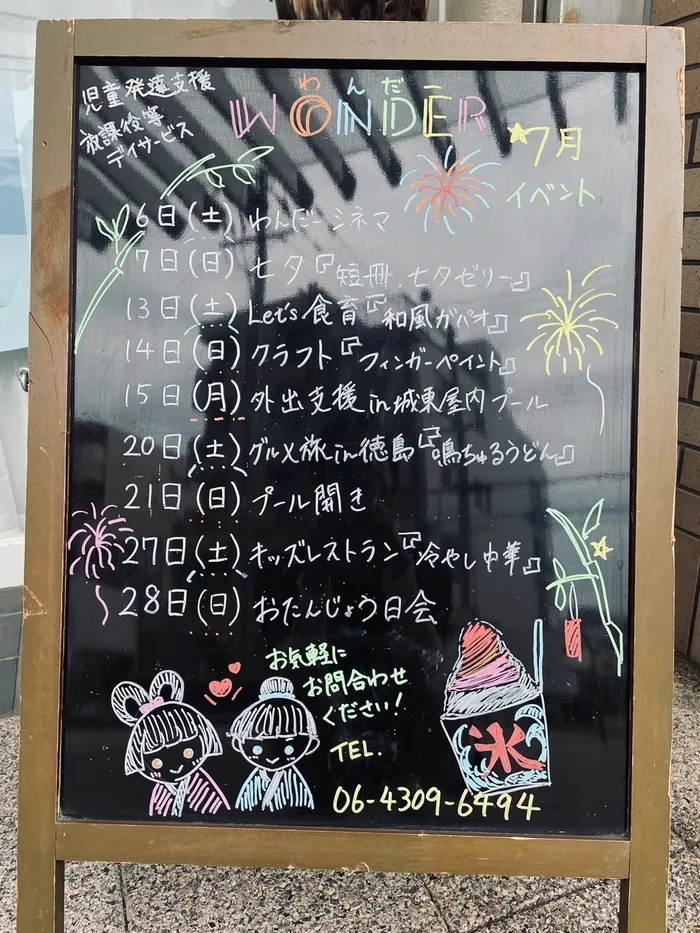 児童発達支援
放課後等
デイサービス
わんだー
WONDER
7月
イベント
6日(土) わんだーシネマ
7日(日) 七夕『短冊.七夕ゼリー』
13日(土) Let's食育『和風ガパオ』
14日(日) クラフト『フィンガーペイント』
15日(月) 外出支援in城東屋内プール
20日(土) グルメ旅in徳島『鳴ちゅるうどん』
21日(日) プール開き
27日(土) キッズレストラン『冷やし中華』
28日(日) おたんじょう日会
お気軽に
お問合わせ
ください!
氷
TEL.
06-4309-6494